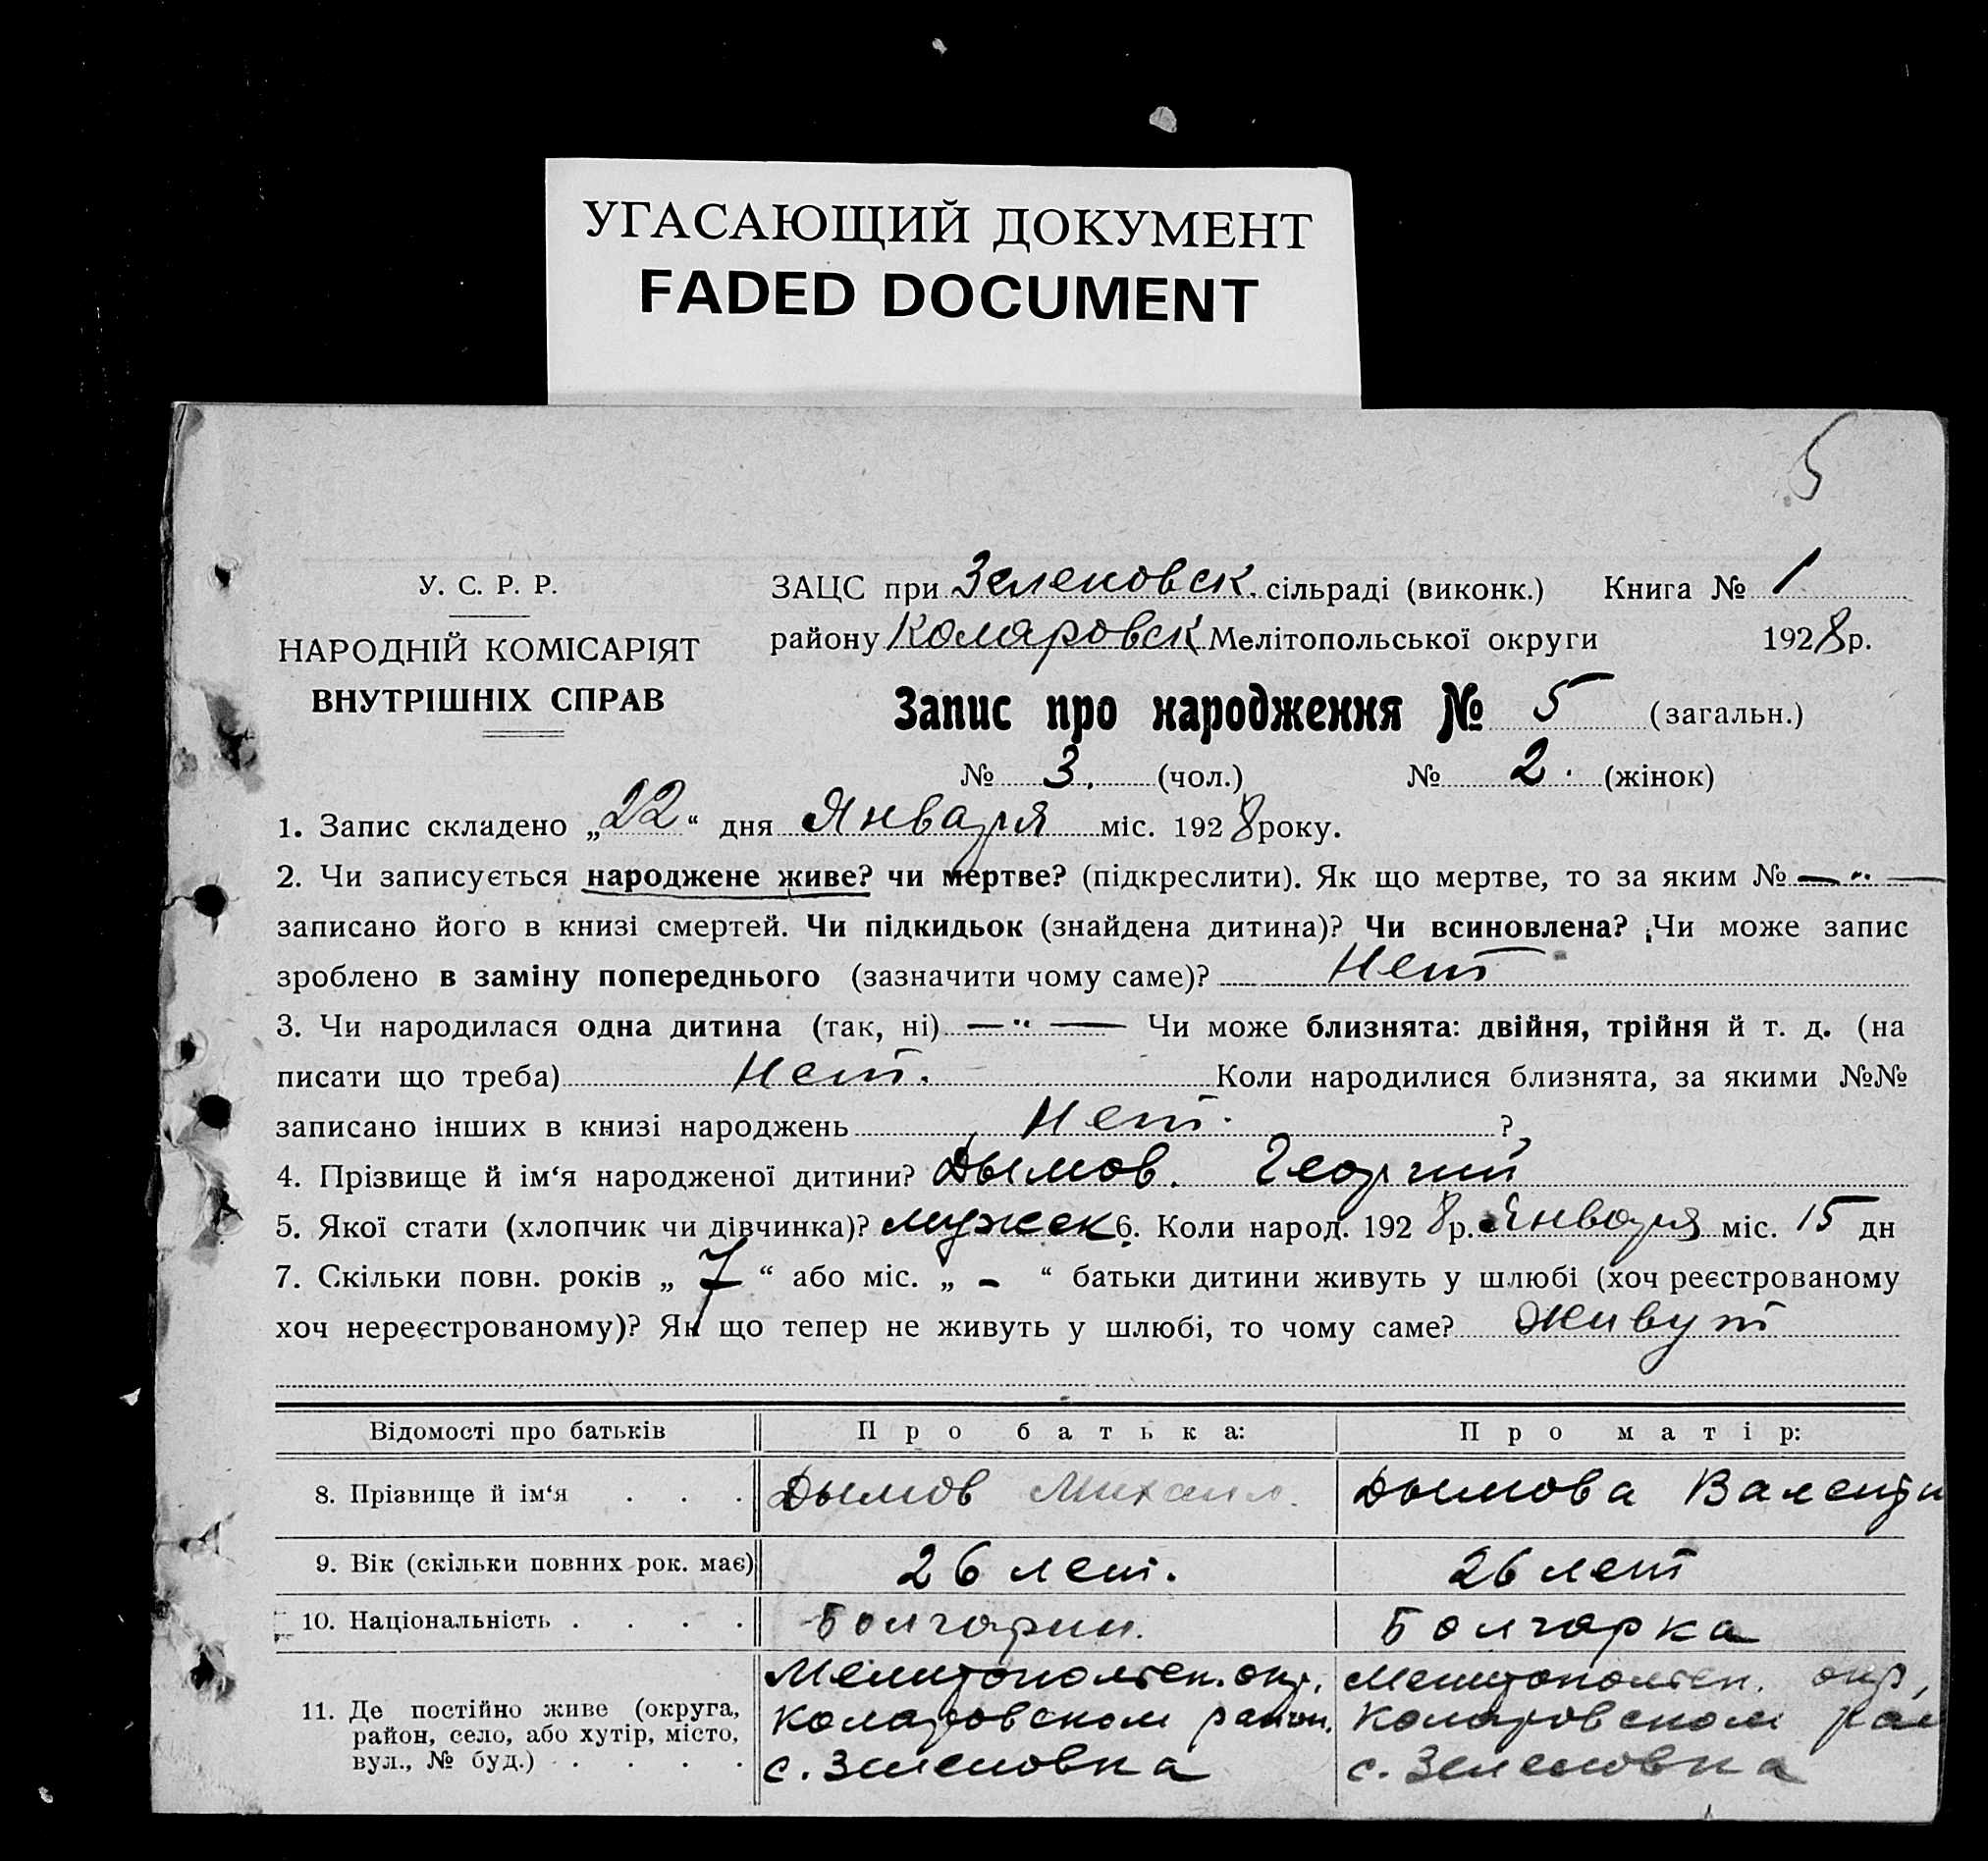 УГАСАЮЩИЙ ДОКУМЕНТ
FADED DOCUMENT
5
У. С. Р. Р.
НАРОДНІЙ КОМІСАРІЯТ
ВНУТРІШНІХ СПРАВ
ЗАЦС при Зеленовск. сільраді (виконк.) Книга № 1
району Коларовск Мелітопольської округи 1928 р.
Запис про народження № 5 (загальн.)
№ 3. (чол.) № 2. (жінок)
1. Запис складено „22“ дня Января міс. 1928 року.
2. Чи записується народжене живе? чи мертве? (підкреслити). Як що мертве, то за яким № — „ —
записано його в книзі смертей. Чи підкидьок (знайдена дитина)? Чи всиновлена? Чи може запис
зроблено в заміну попереднього (зазначити чому саме)? Нет
3. Чи народилася одна дитина (так, ні) — „ — Чи може близнята: двійня, трійня й т. д. (на
писати що треба) Нет. Коли народилися близнята, за якими №№
записано інших в книзі народжень Нет. ?
4. Прізвище й ім‘я народженої дитини? Дымов. Георгий
5. Якої стати (хлопчик чи дівчинка)? мужск 6. Коли народ. 1928 р. Января міс. 15 дн
7. Скільки повн. років „ 7 “ або міс. „ - “ батьки дитини живуть у шлюбі (хоч реєстрованому
хоч нереєстрованому)? Як що тепер не живуть у шлюбі, то чому саме? Живут
Відомості про батьків Про батька: Про матір:
8. Прізвище й ім‘я . . . Дымов Михаил. Дымова Валенти
9. Вік (скільки повних рок. має) 26 лет. 26 лет
10. Національність . . . . Болгарин. Болгарка
11. Де постійно живе (округа, район, село, або хутір, місто, вул., № буд.) . . . .
Мелитопольск. окр., Коларовском район. с. Зеленовка
Мелитопольск. окр, Коларовском рай с. Зеленовка